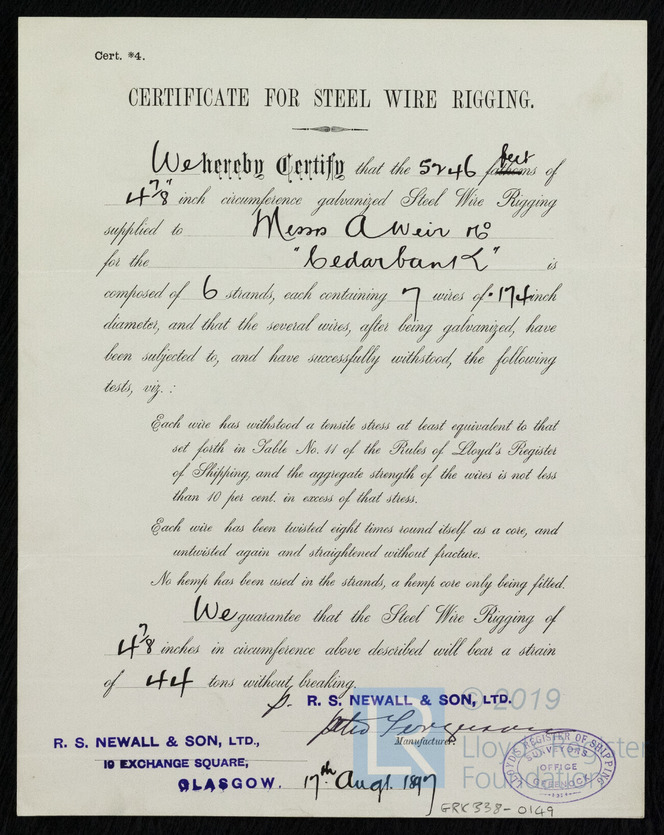 Cert. *4.
CERTIFICATE FOR STEEL WIRE RIGGING.
We hereby Certify that the 5246 feet fathoms of
4 7/8" inch circumference galvanized Steel Wire Rigging
supplied to Messrs A Weir & Co
for the "Cedarbank" is
composed of 6 strands, each containing 7 wires of .174 inch
diameter, and that the several wires, after being galvanized, have
been subjected to, and have successfully withstood, the following
tests, viz. :
Each wire has withstood a tensile stress at least equivalent to that
set forth in Table No. 11 of the Rules of Lloyd's Register
of Shipping, and the aggregate strength of the wires is not less
than 10 per cent. in excess of that stress.
Each wire has been twisted eight times round itself as a core, and
untwisted again and straightened without fracture.
No hemp has been used in the strands, a hemp core only being fitted.
We guarantee that the Steel Wire Rigging of
4 7/8 inches in circumference above described will bear a strain
of 44 tons without breaking.
p. R. S. NEWALL & SON, LTD.
© 2019
Ferguson
Manufacturer.
R. S. NEWALL & SON, LTD.,
19 EXCHANGE SQUARE,
GLASGOW. 17th Augt. 1897
LR
Lloyd's Register
Foundation
LLOYD'S REGISTER OF SHIPPING
SURVEYORS
OFFICE
GREENOCK
GRK338-0149